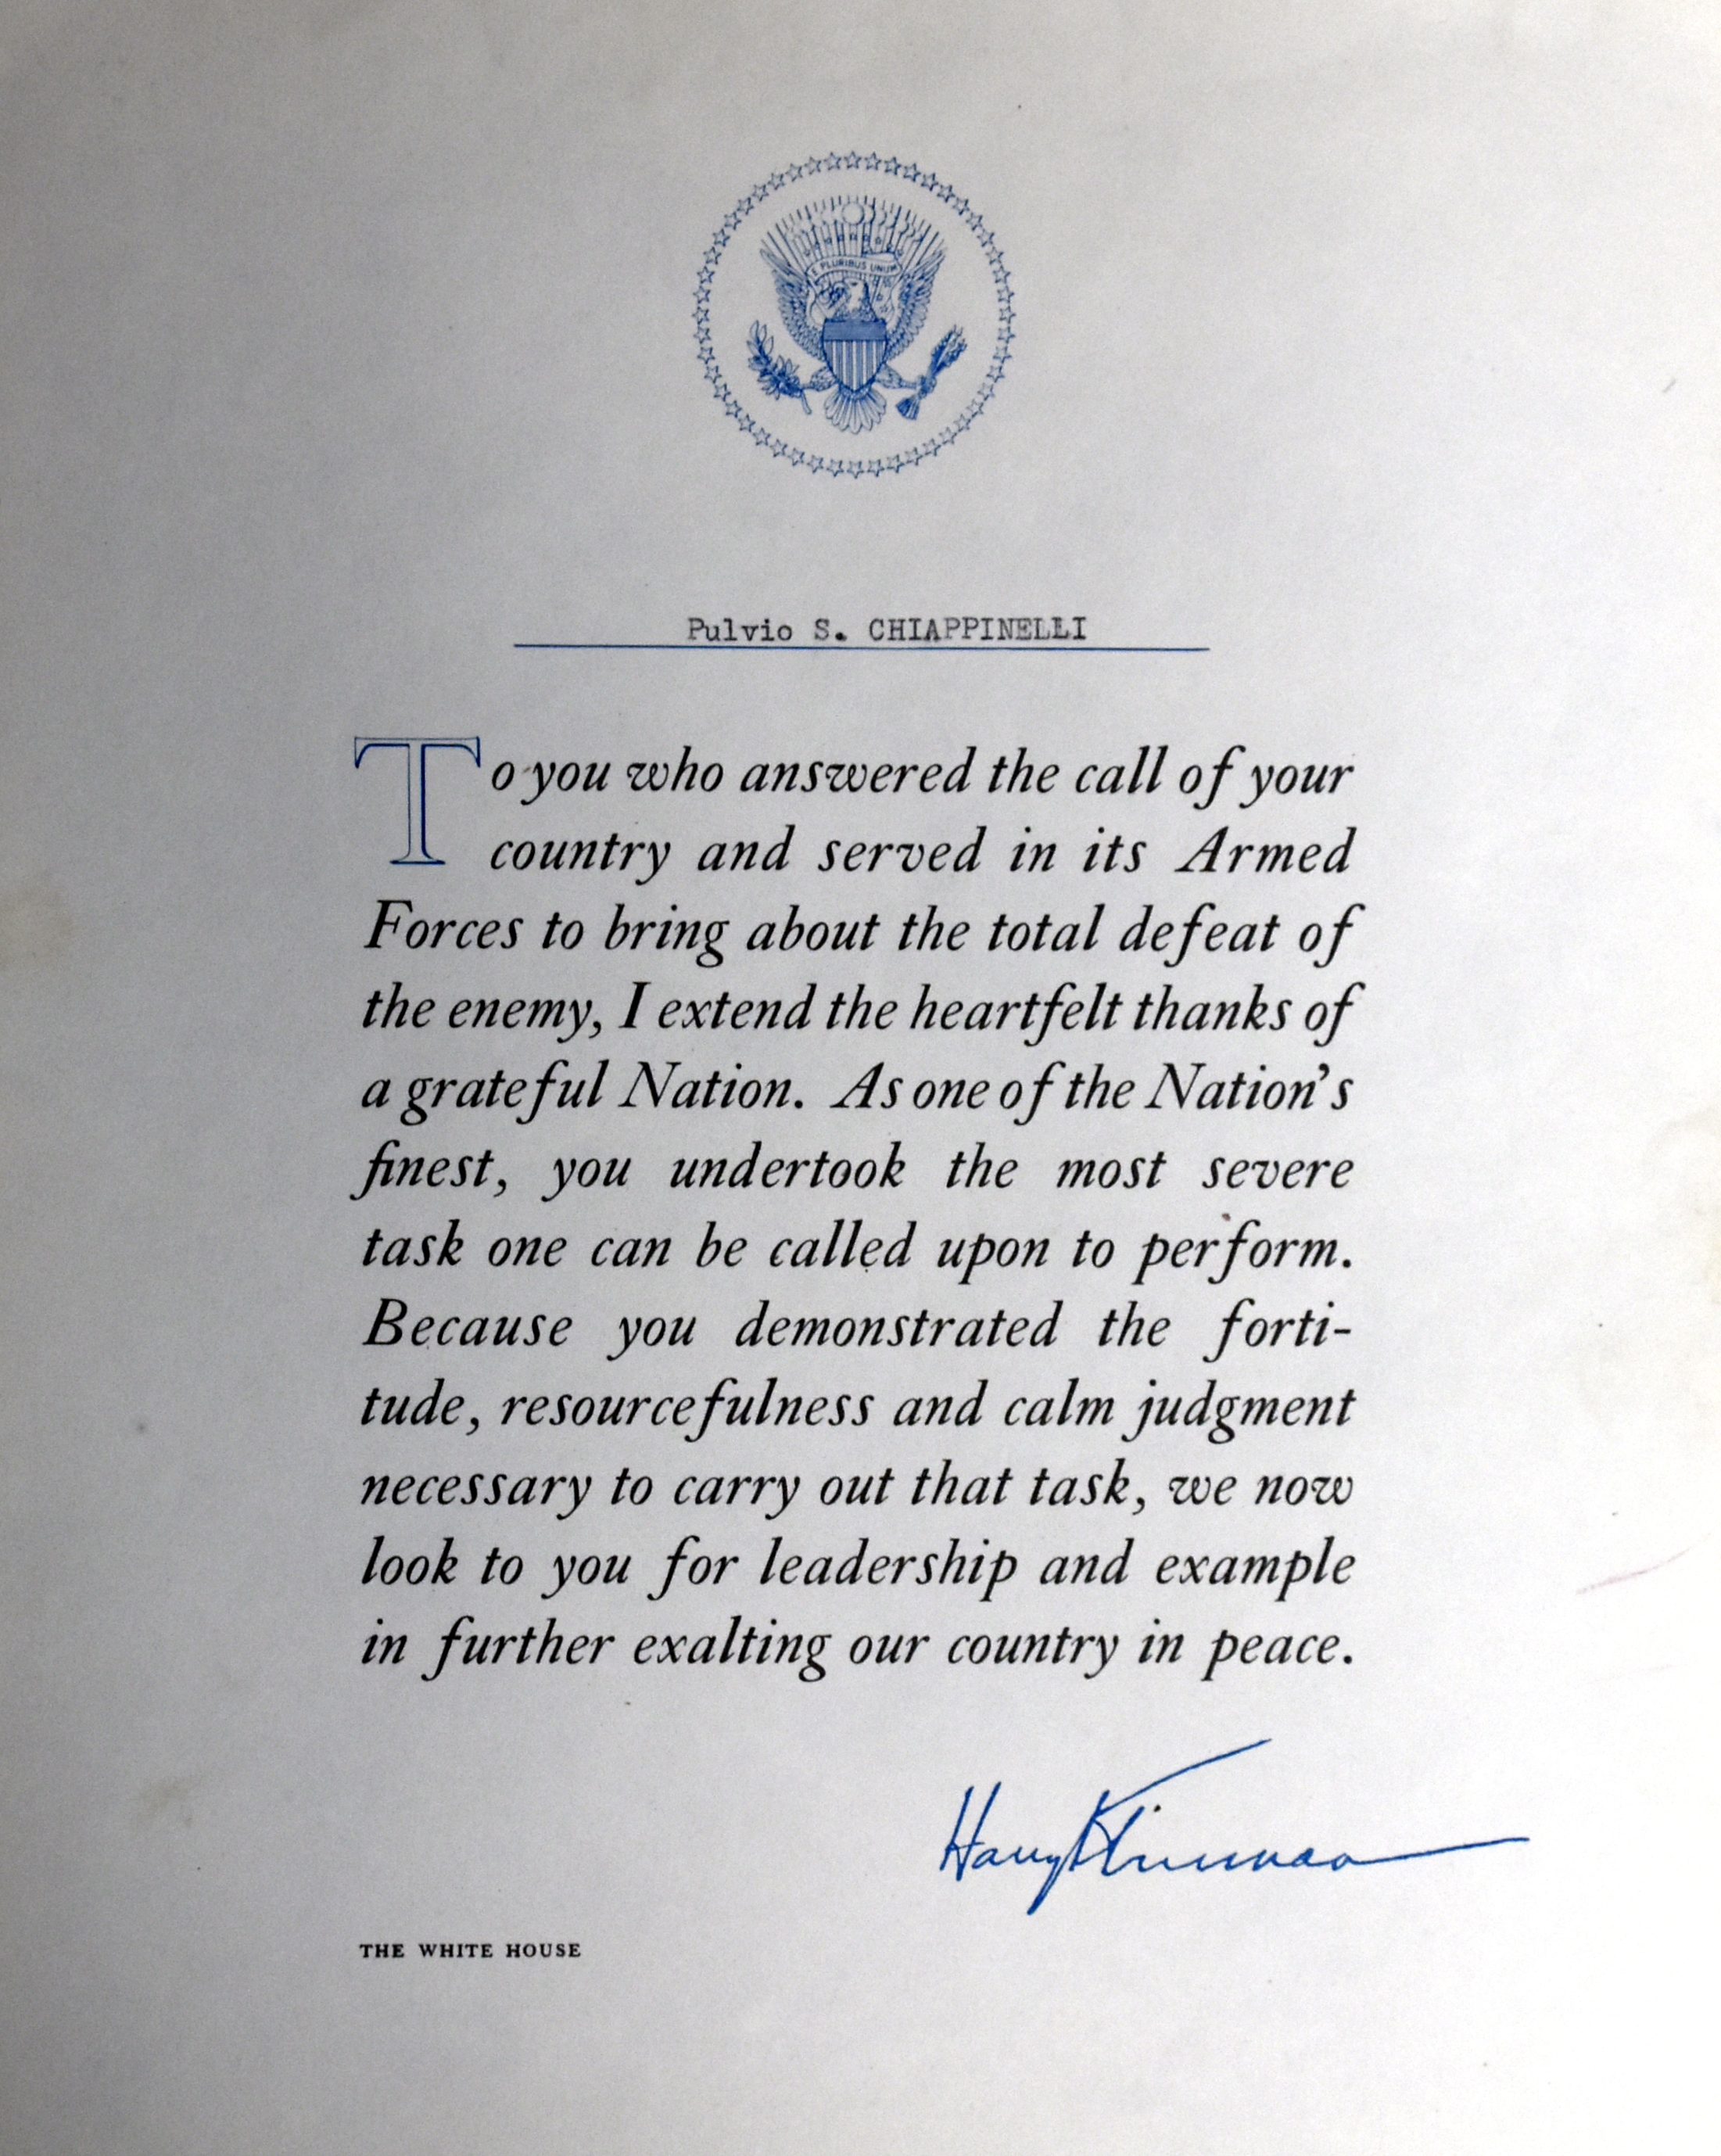 E PLURIBUS UNUM
Pulvio S. CHIAPPINELLI
To you who answered the call of your
country and served in its Armed
Forces to bring about the total defeat of
the enemy, I extend the heartfelt thanks of
a grateful Nation. As one of the Nation's
finest, you undertook the most severe
task one can be called upon to perform.
Because you demonstrated the forti-
tude, resourcefulness and calm judgment
necessary to carry out that task, we now
look to you for leadership and example
in further exalting our country in peace.
Harry Truman
THE WHITE HOUSE